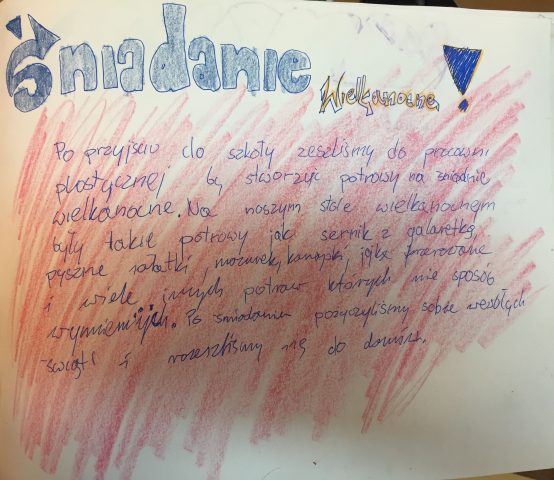 Śniadanie
Wielkanocne !
Po przyjściu do szkoły zeszliśmy do pracowni
plastycznej by stworzyć potrawy na śniadanie
wielkanocne. Na naszym stole wielkanocnym
były takie potrawy jak sernik z galaretką,
pyszne sałatki, mazurek, kanapki, jajka faszerowane
i wiele innych potraw których nie sposób
wymienić. Po śniadaniu pożyczyliśmy sobie wesołych
świąt i rozeszliśmy się do domów.